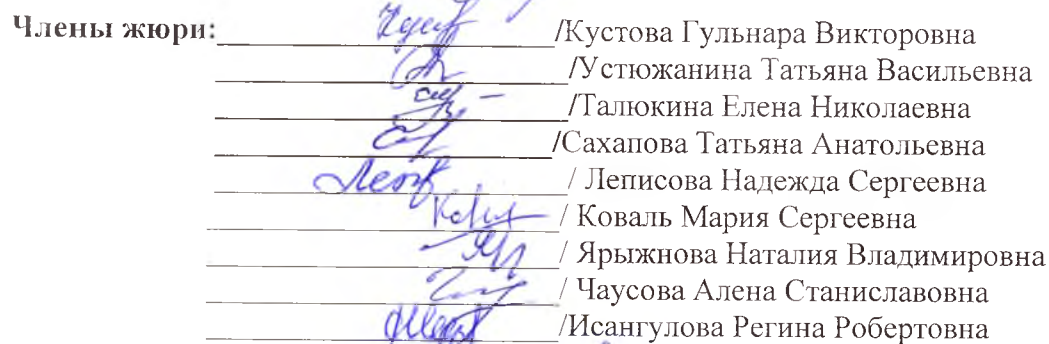 Члены жюри: /Кустова Гульнара Викторовна
/Устюжанина Татьяна Васильевна
/Талюкина Елена Николаевна
/Сахапова Татьяна Анатольевна
/ Леписова Надежда Сергеевна
/ Коваль Мария Сергеевна
/ Ярыжнова Наталия Владимировна
/ Чаусова Алена Станиславовна
/Исангулова Регина Робертовна